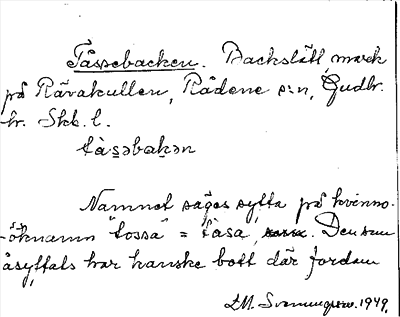 Tåssebacken. Backslätt, mark
på Rävakullen, Rådene s:n, Gudhe.
hr. Skb. l.
tàs̱əbaḵən
Namnet säges syfta på kvinno-
öknamn "tossa" = tåsa, . Den som
åsyftats har kanske bott där fordom
1949.